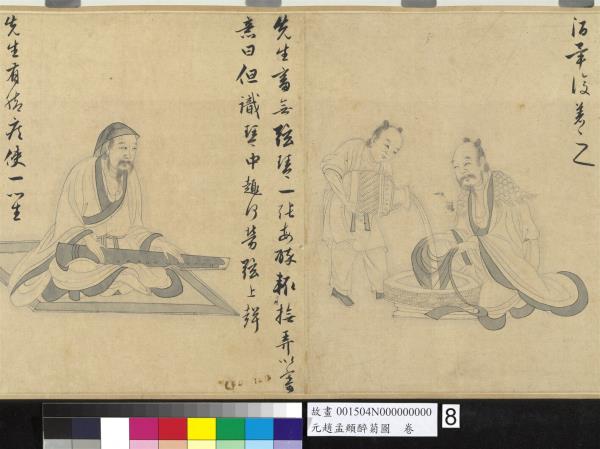 酒畢復著之
先生蓄無弦琴一張每醉輒撫弄以寄
意曰但識琴中趣何勞弦上聲
先生有腳疾使一門生
故畫 001504N000000000
元趙孟頫醉菊圖 卷
8